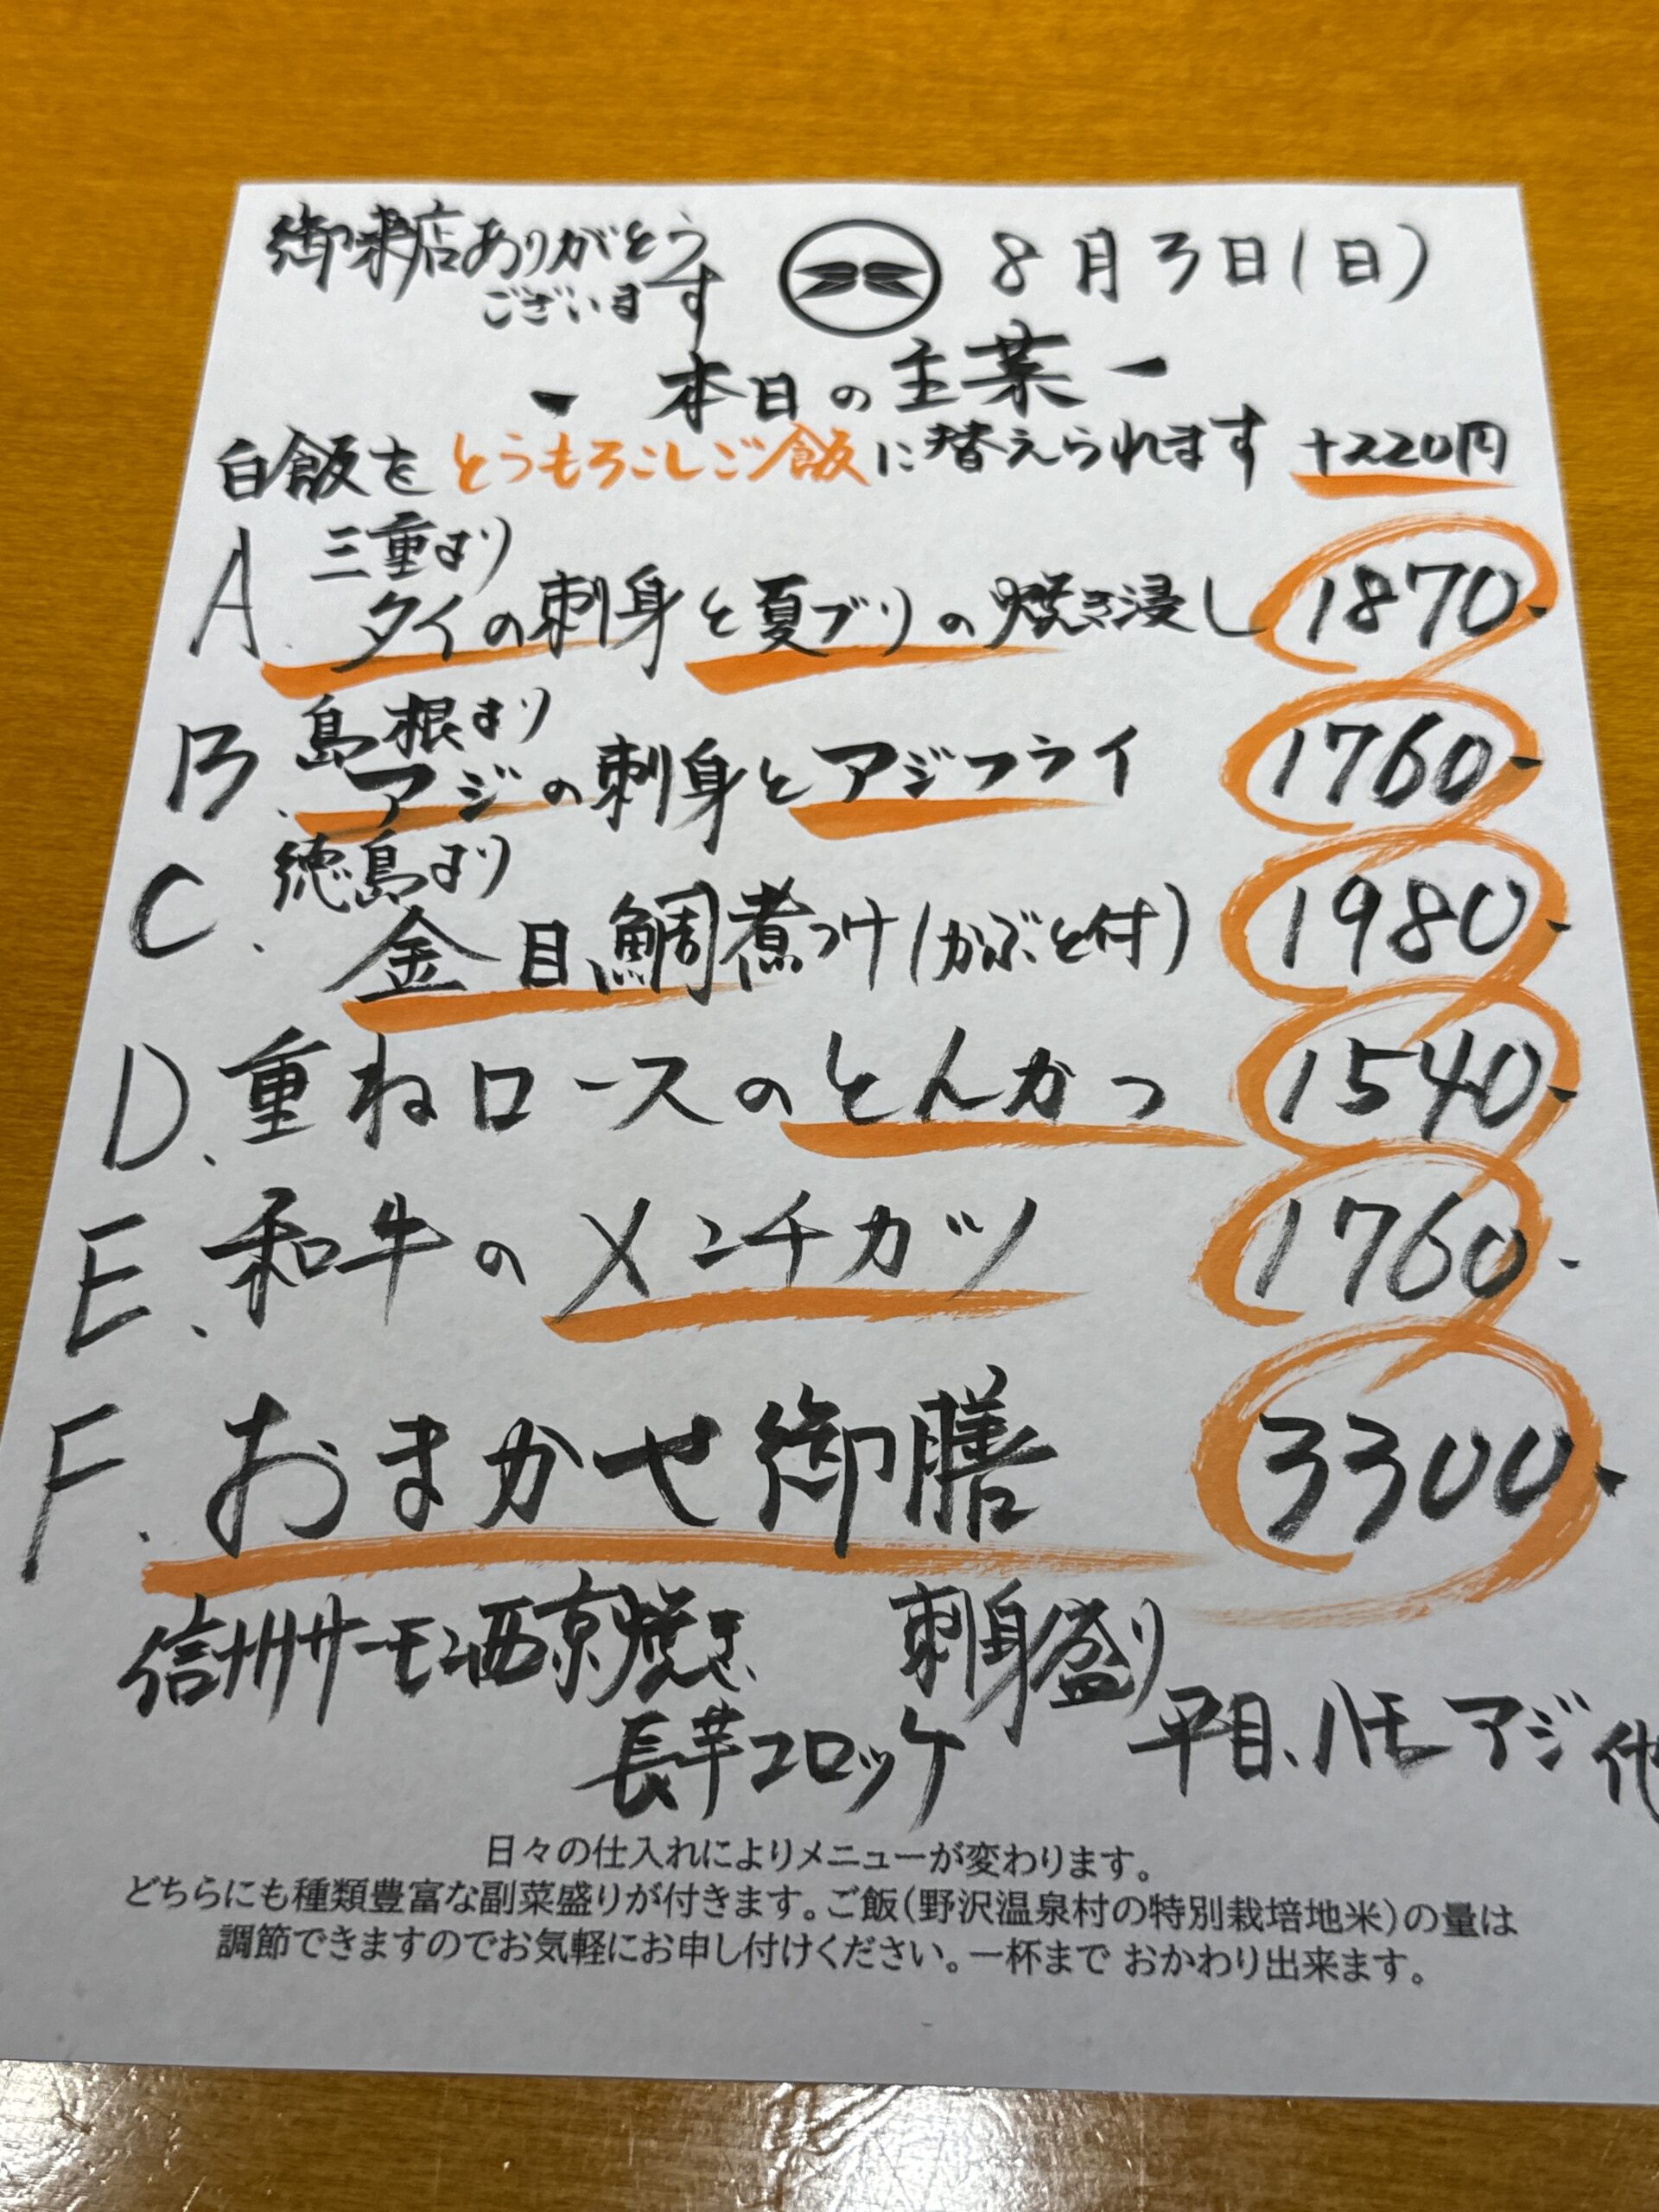 御来店ありがとう
ございます
8月3日(日)
- 本日の主菜 -
白飯をとうもろこしご飯に替えられます +220円
A. 三重より
タイの刺身と夏ブリの焼き浸し 1870.-
B. 島根より
アジの刺身とアジフライ 1760.-
C. 徳島より
金目鯛煮つけ(かぶと付) 1980.-
D. 重ねロースのとんかつ 1540.-
E. 和牛のメンチカツ 1760.-
F. おまかせ御膳 3300.-
信州サーモン西京焼き 刺身盛り
長芋コロッケ 平目、ハモ アジ 他
日々の仕入れによりメニューが変わります。
どちらにも種類豊富な副菜盛りが付きます。ご飯(野沢温泉村の特別栽培地米)の量は
調節できますのでお気軽にお申し付けください。一杯まで おかわり出来ます。